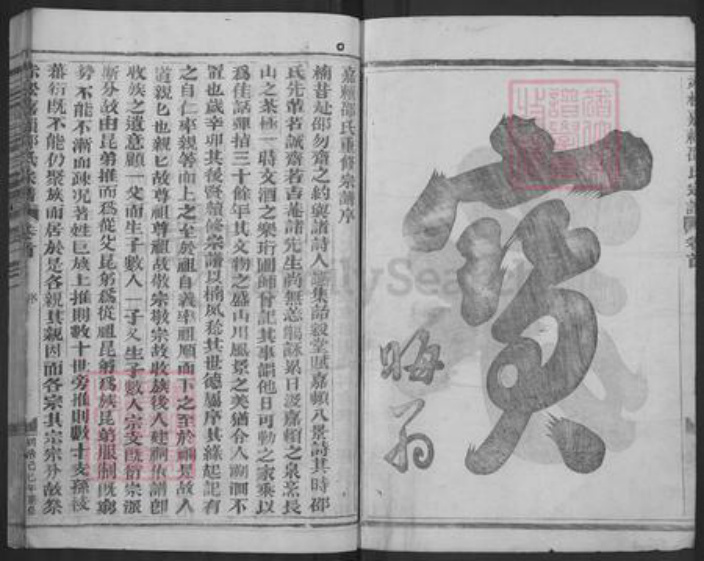 寶
晦翁
嘉頼邵氏重修宗譜序
楠昔赴邵勿齋之約與諸詩人讌集詒穀堂賦嘉頼八景詩其時邵
氏先輩若誠齋若吉菴諸先生尚無恙觴詠累日汲嘉頼之泉烹長
山之茶極一時文酒之樂珩圃師曾記其事韻他日可勒之家乘以
爲佳話彈指三十餘年其文物之盛山川風景之美猶令人
置也歲辛卯其後賢續修宗譜以楠夙稔其世德屬序其緣起記有
之自仁率親等而上之至於祖自義率祖順而下之至於禰是故人
道親親也親親故尊祖尊祖故敬宗敬宗故收族後人建祠依譜即
收族之遺意顧一父而生子數人一子又生子數人宗支既衍宗派
斯分故由昆弟推而爲從父昆弟爲從祖昆弟爲族昆弟服制既窮
勢不能不漸而疎况著姓巨族上推則數十世旁推則數十支孫枝
蕃衍既不能仍聚族而居於是各親其親因而各宗其宗宗分故祭